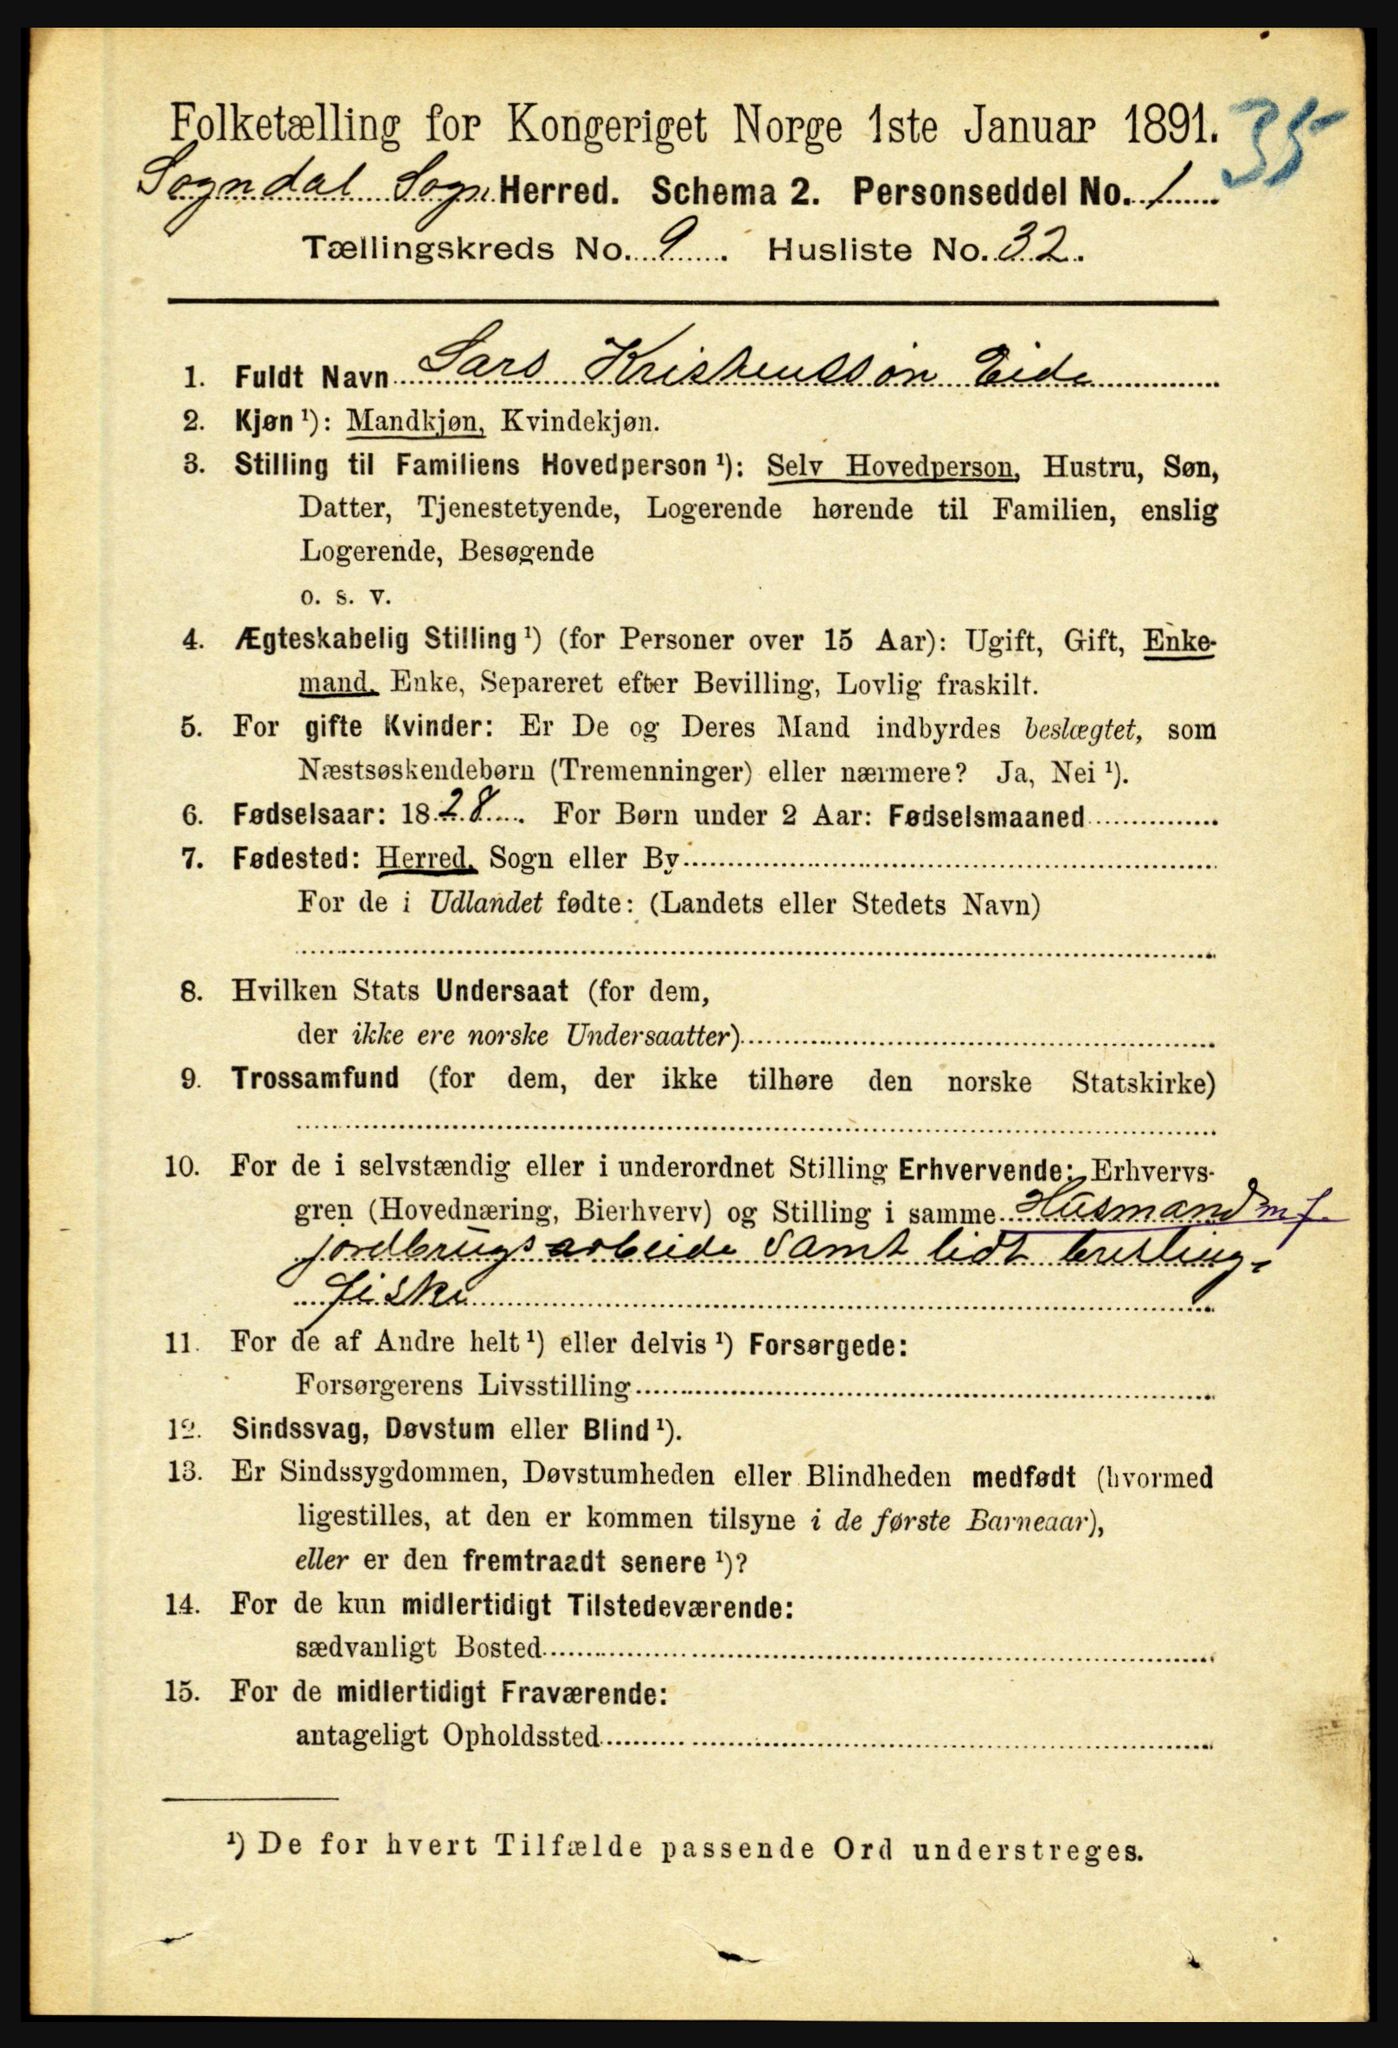 Folketælling for Kongeriget Norge 1ste Januar 1891. 35
Sogndal Sogn Herred. Schema 2. Personseddel No. 1
Tællingskreds No. 9. Husliste No. 32.
1. Fuldt Navn Lars Kristensson Eide
2. Kjøn ¹): Mandkjøn, Kvindekjøn.
3. Stilling til Familiens Hovedperson ¹): Selv Hovedperson, Hustru, Søn,
Datter, Tjenestetyende, Logerende hørende til Familien, enslig
Logerende, Besøgende
o. s. v.
4. Ægteskabelig Stilling ¹) (for Personer over 15 Aar): Ugift, Gift, Enke-
mand, Enke, Separeret efter Bevilling, Lovlig fraskilt.
5. For gifte Kvinder: Er De og Deres Mand indbyrdes beslægtet, som
Næstsøskendebørn (Tremenninger) eller nærmere? Ja, Nei ¹).
6. Fødselsaar: 1828. For Børn under 2 Aar: Fødselsmaaned
7. Fødested: Herred, Sogn eller By
For de i Udlandet fødte: (Landets eller Stedets Navn)
8. Hvilken Stats Undersaat (for dem,
der ikke ere norske Undersaatter)
9. Trossamfund (for dem, der ikke tilhøre den norske Statskirke)
10. For de i selvstændig eller i underordnet Stilling Erhvervende: Erhvervs-
gren (Hovednæring, Bierhverv) og Stilling i samme Husmand m j.
jordbrugsarbeide samt lidt brisling-
fiske
11. For de af Andre helt ¹) eller delvis ¹) Forsørgede:
Forsørgerens Livsstilling
12. Sindssvag, Døvstum eller Blind ¹).
13. Er Sindssygdommen, Døvstumheden eller Blindheden medfødt (hvormed
ligestilles, at den er kommen tilsyne i de første Barneaar),
eller er den fremtraadt senere ¹)?
14. For de kun midlertidigt Tilstedeværende:
sædvanligt Bosted
15. For de midlertidigt Fraværende:
antageligt Opholdssted
¹) De for hvert Tilfælde passende Ord understreges.